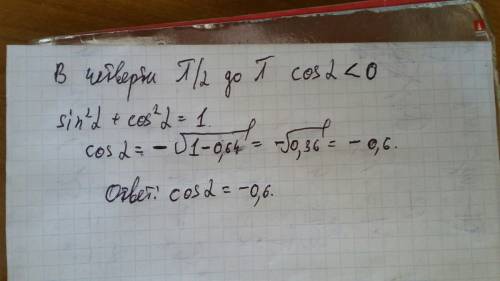 В четверти π/2 до π cos α < 0
sin²α + cos²α = 1.
cos α = -√(1-0,64) = -√0,36 = -0,6.
Ответ: cos α = -0,6.